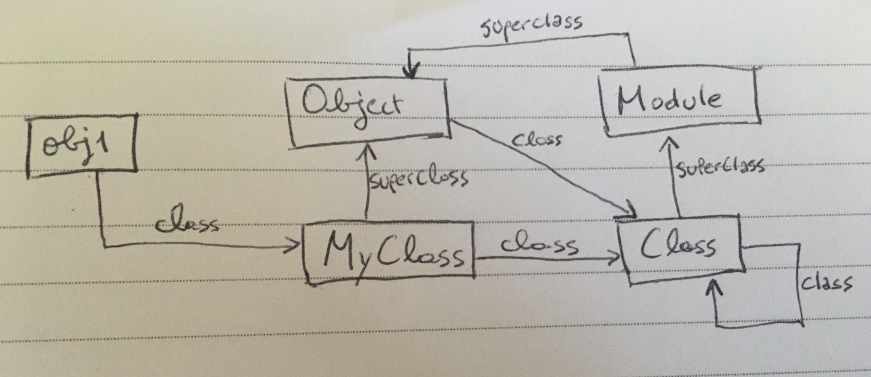 superclass
Object
Module
obj1
class
superclass
superclass
class
MyClass
class
Class
class